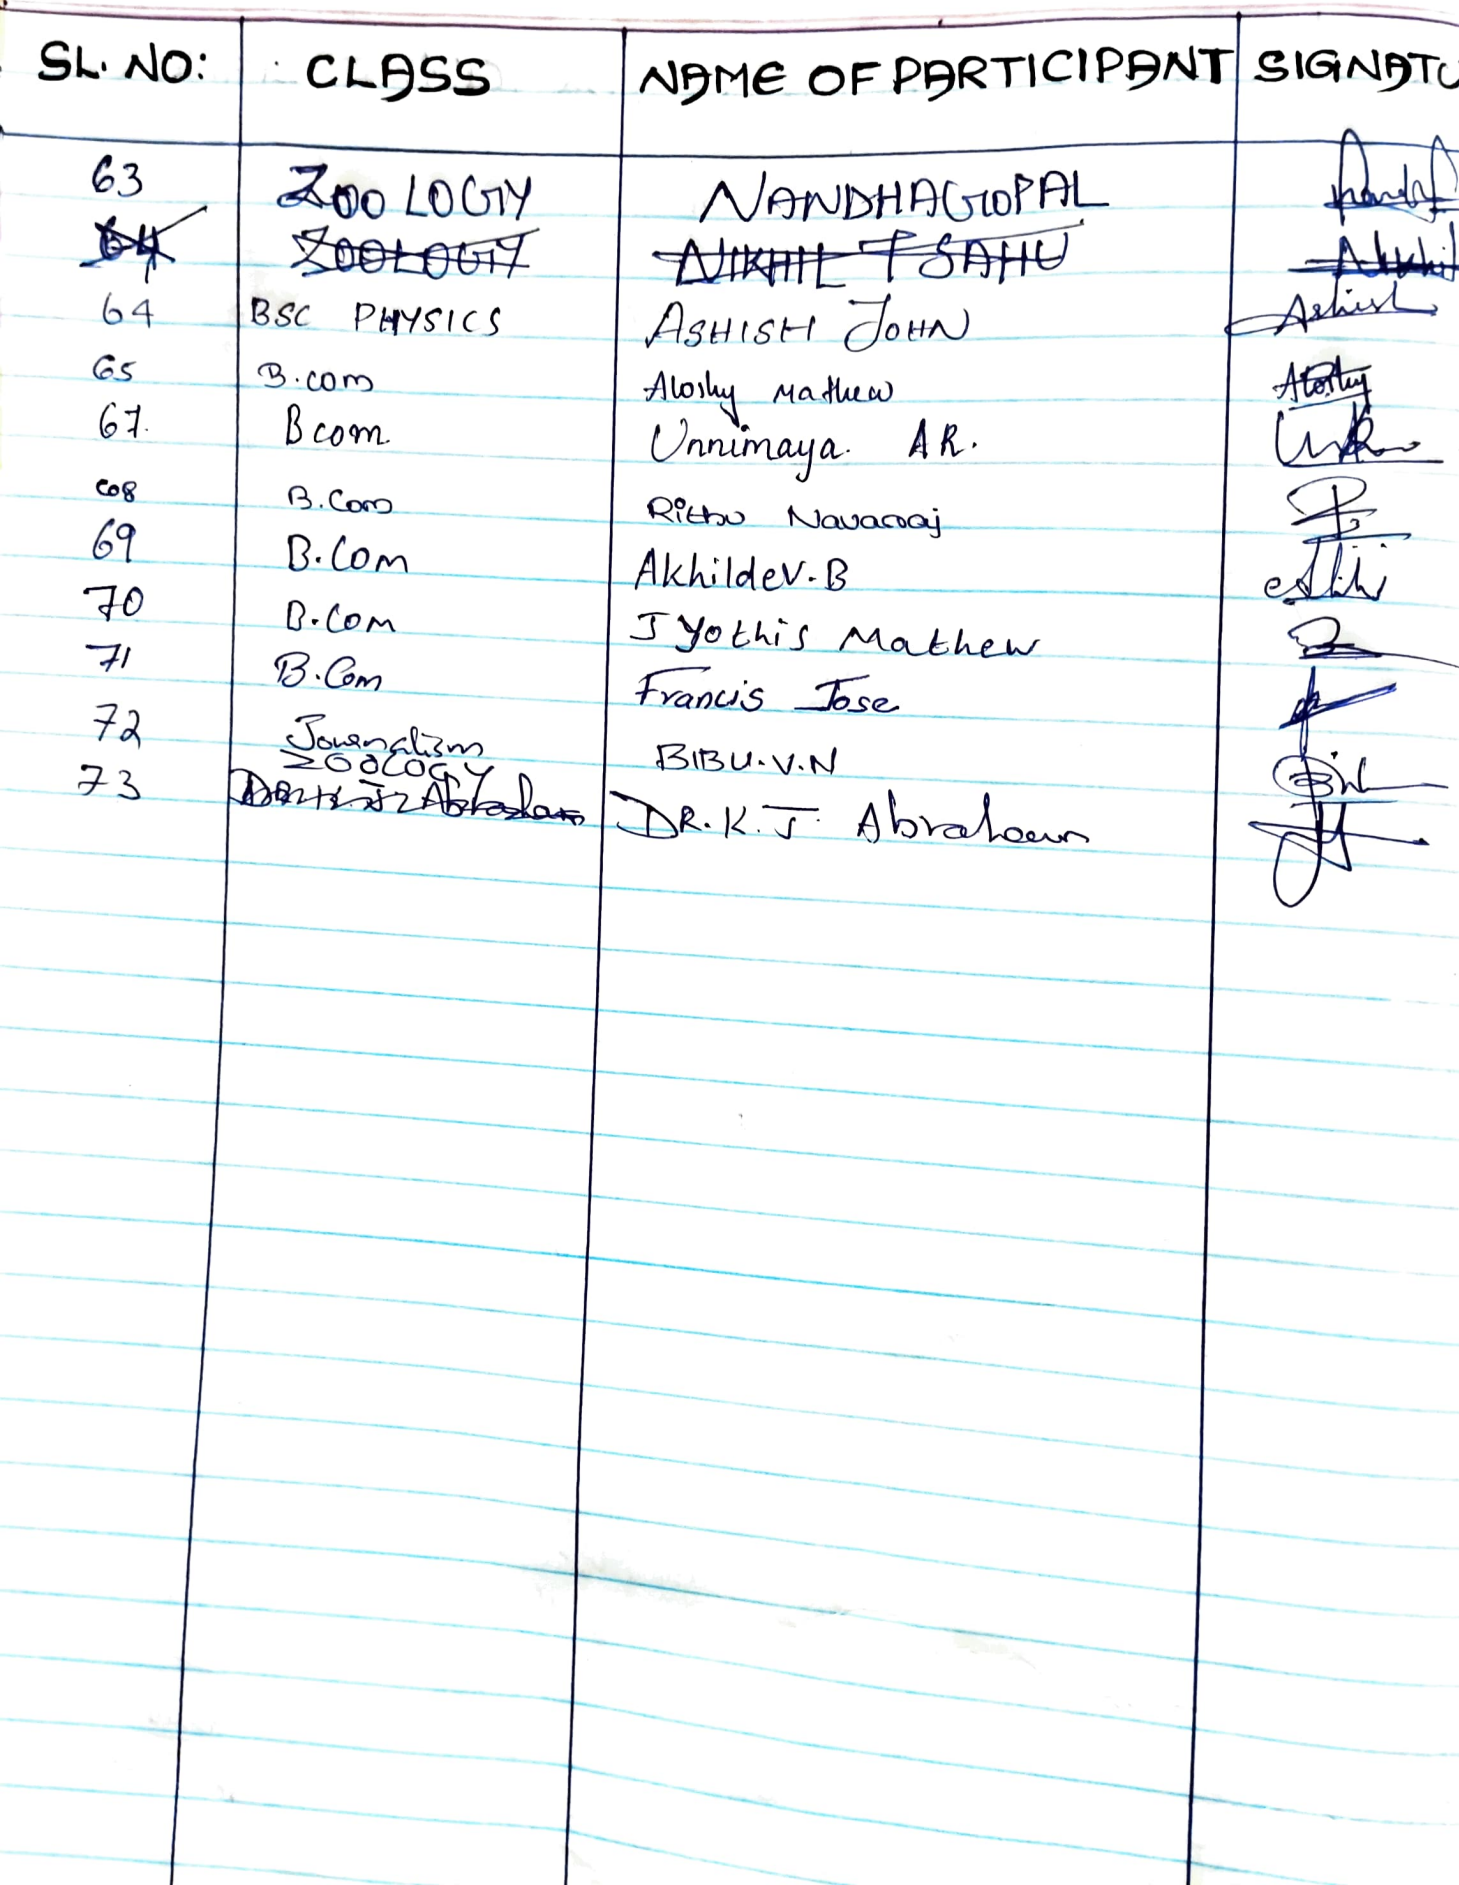 SL. NO: CLASS NAME OF PARTICIPANT SIGNATU
63 ZOOLOGY NANDHAGOPAL
64 ZOOLOGY NIKHIL T SAHU
64 BSC PHYSICS ASHISH JOHN Ashish
65 B.com Aloshy Mathew Aloshy
67. Bcom Unnimaya. AR.
68 B.Com Rithu Navaraj
69 B.Com Akhildev.B
70 B.Com Jyothis Mathew
71 B.Com Francis Jose
72 Journalism BIBU.V.N
73 ZOOLOGY DR.K.J. Abraham